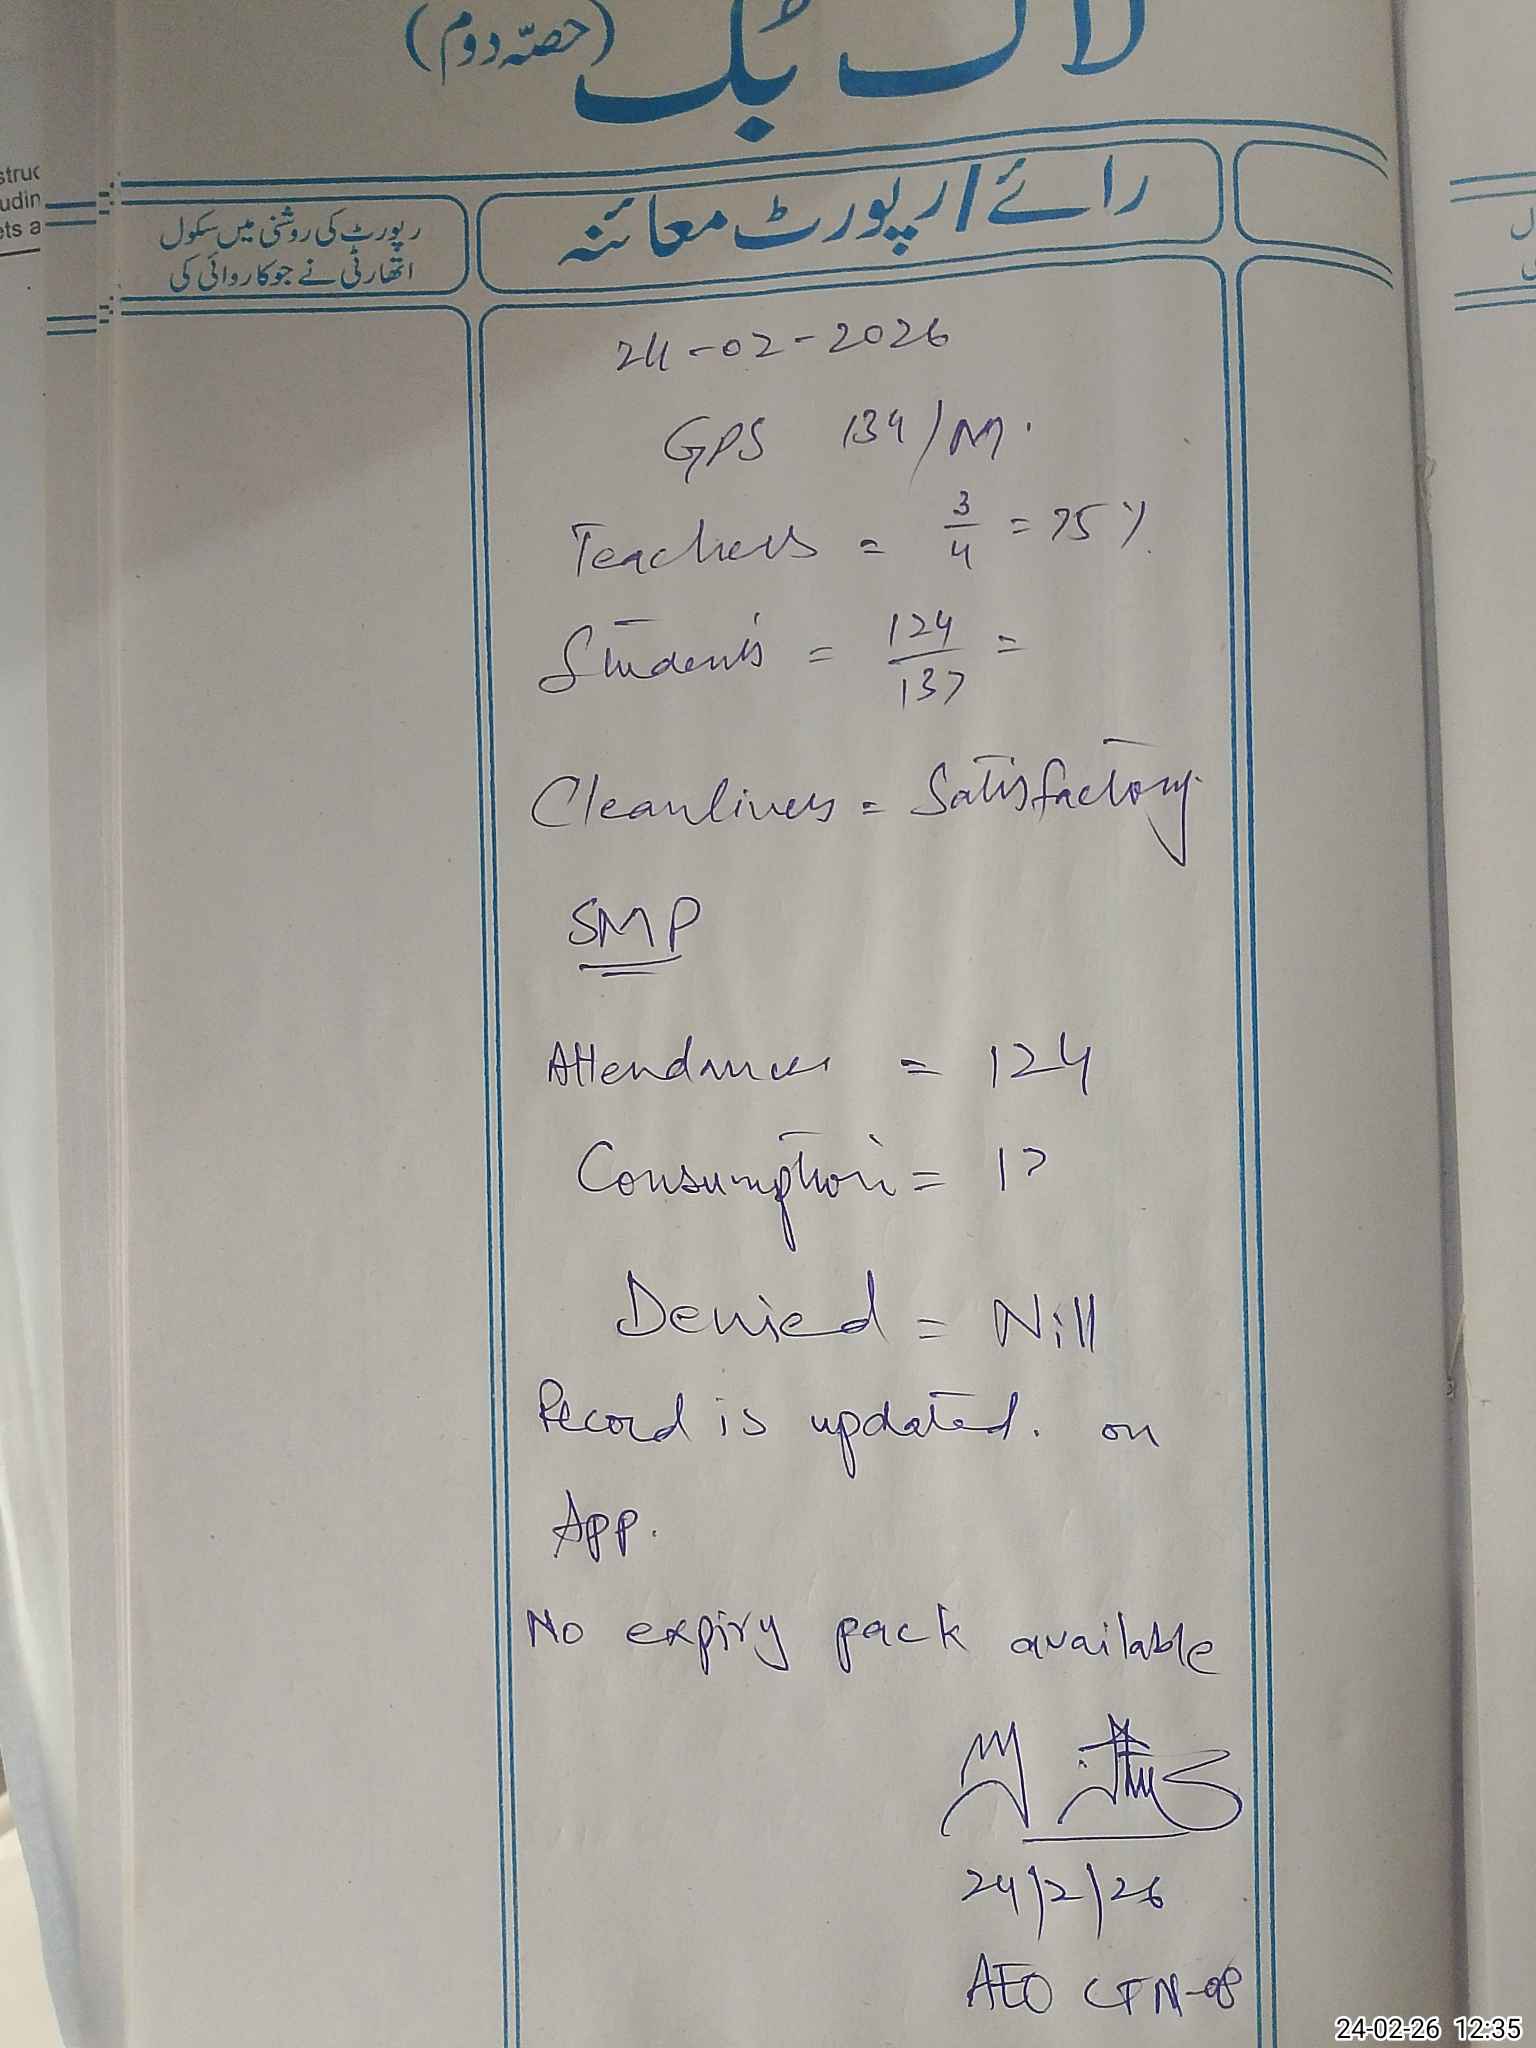 لاگ بک (حصّہ دوم)
رائے / رپورٹ معائنہ
رپورٹ کی روشنی میں سکول
اتھارٹی نے جو کاروائی کی
struc
udin
ets a
24-02-2026
GPS 134/M.
Teachers = 3/4 = 75%
Students = 124/137 =
Cleanliness = Satisfactory.
SMP
Attendance = 124
Consumption =
Denied = Nill
Record is updated. on
App.
No expiry pack available
24/2/26
AEO CTN-08
24-02-26 12:35